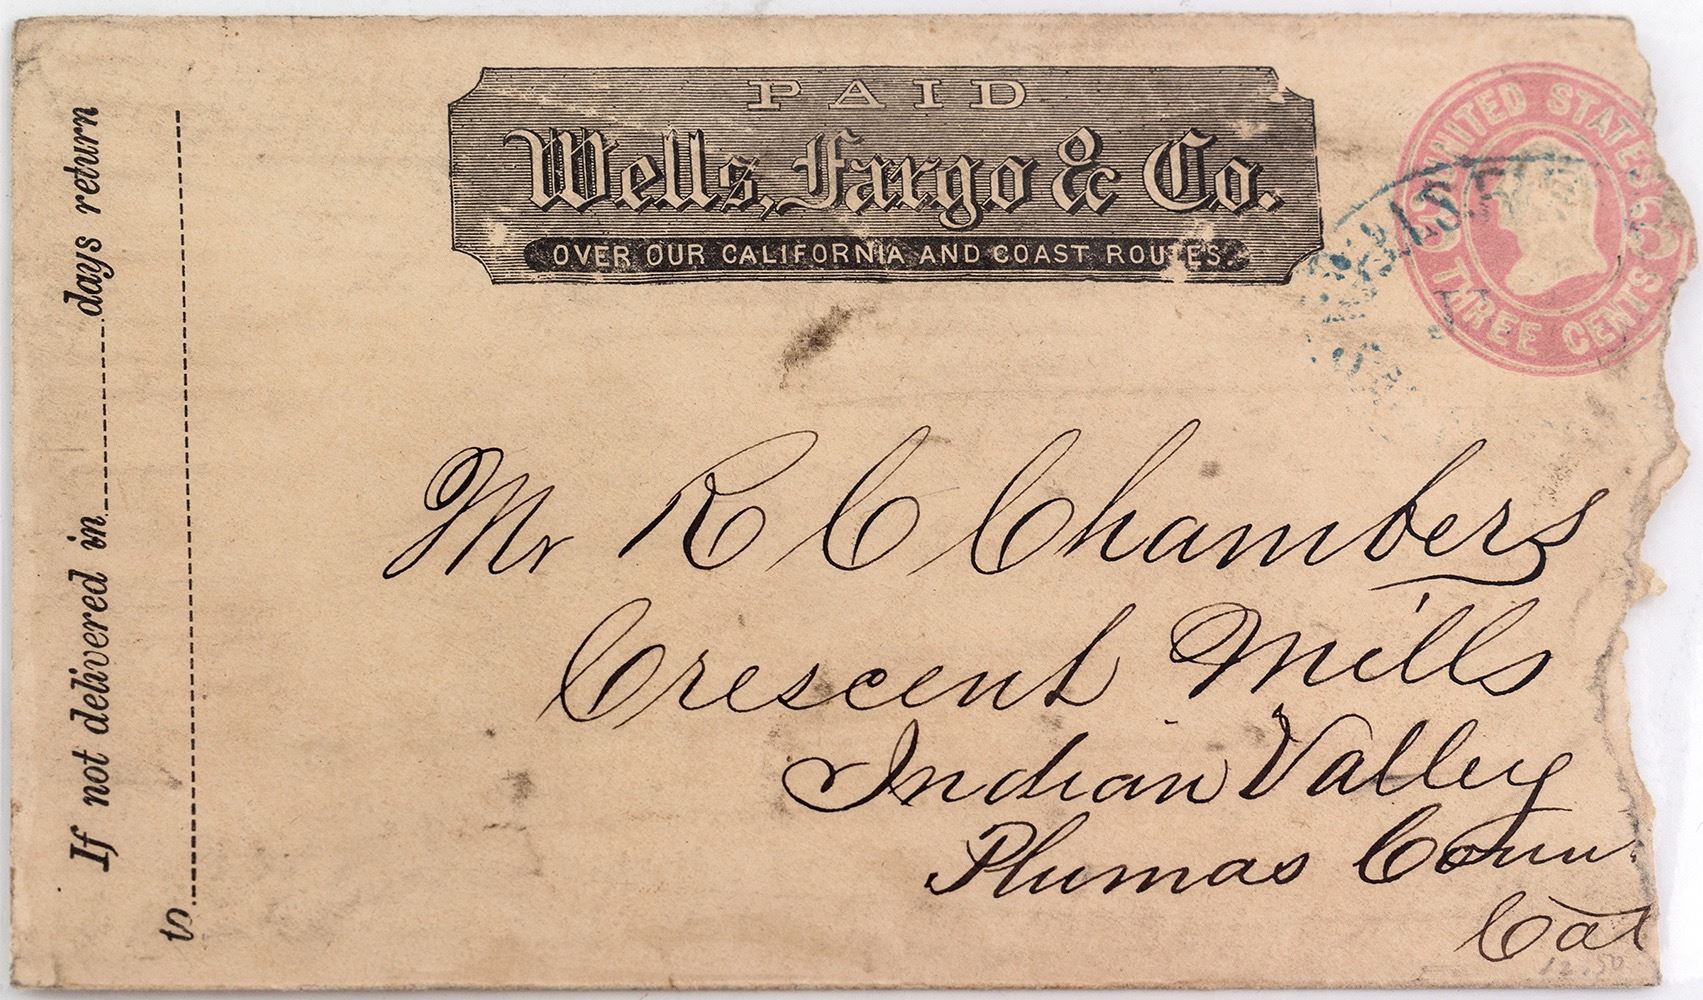 PAID
Wells, Fargo & Co.
OVER OUR CALIFORNIA AND COAST ROUTES.
UNITED STATES
3 3
THREE CENTS
If not delivered in days return
to
Mr R C Chambers
Crescent Mills
Indian Valley
Plumas Coun
Cal
12.50